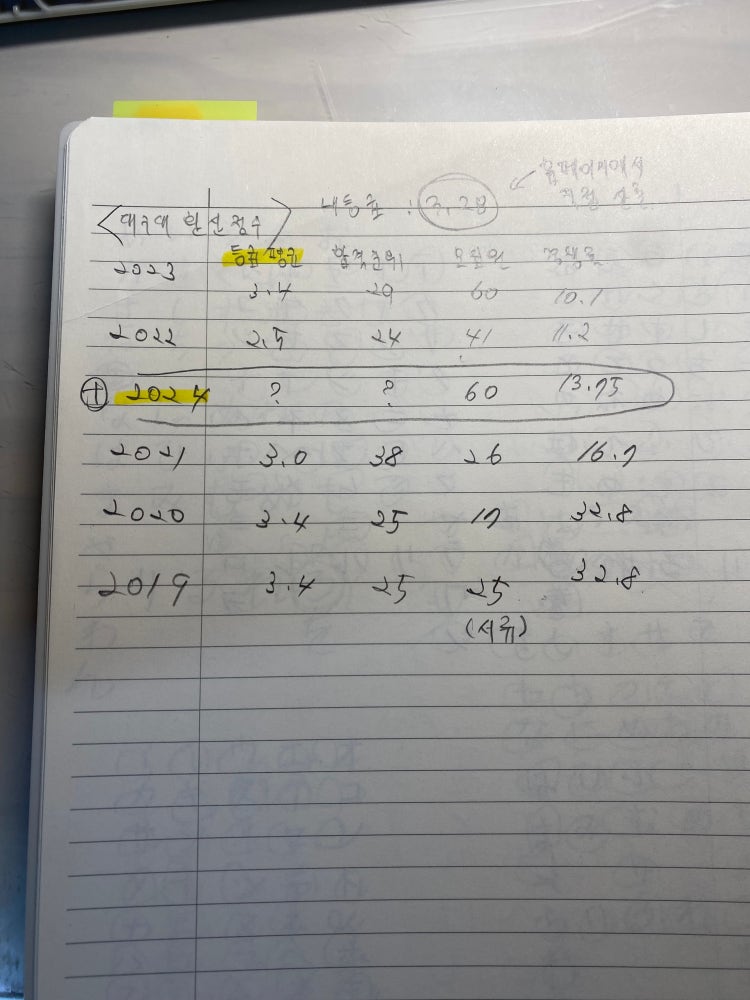 홈페이지에서
직접 산출
<대구대 환산점수> 내등급 : 3.28
등급평균 합격순위 모집인 경쟁률
2023 3.4 29 60 10.1
2022 2.5 24 41 11.2
+ 2024 ? ? 60 13.75
2021 3.0 38 26 16.7
2020 3.4 25 17 32.8
2019 3.4 25 25 32.8
(서류)